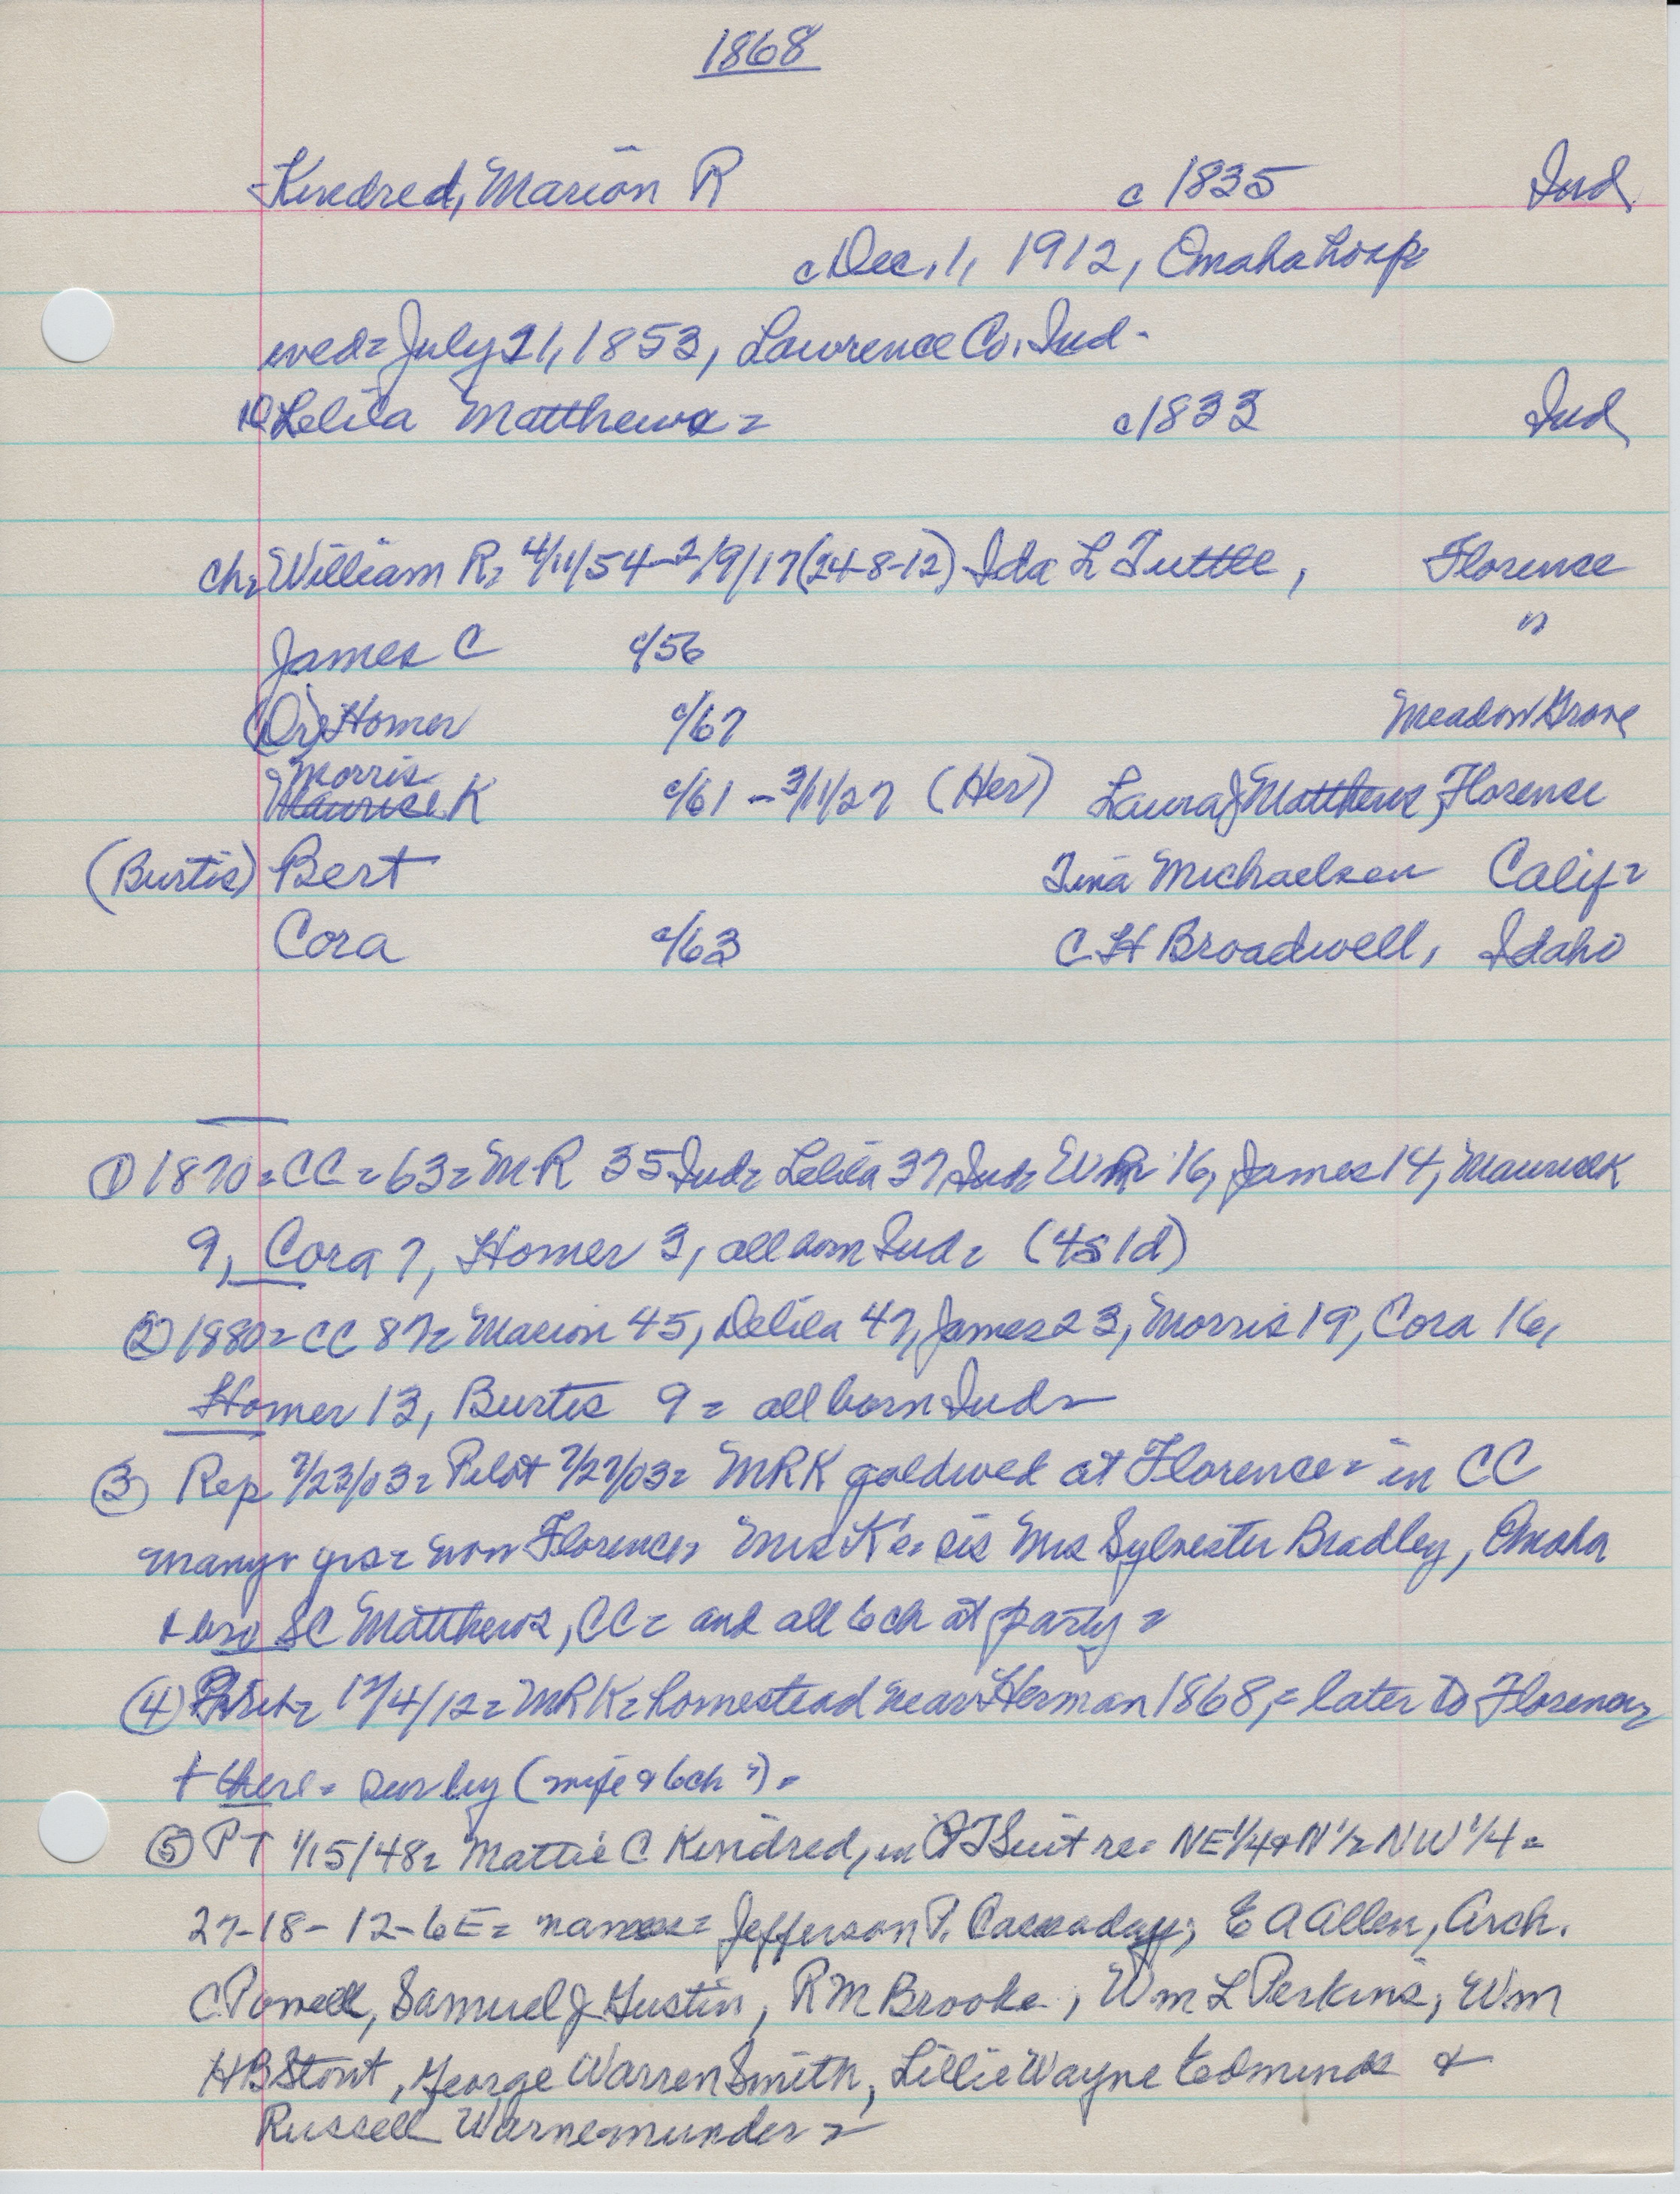 1868
Kindred, Marion R c 1835 Ind
c Dec. 1, 1912, Omaha hosp=
wed= July 21, 1853, Lawrence Co. Ind-
Delila Matthews = c1833 Ind
ch= William R= 4/11/54-2/9/17 (24-8-12) Ida L Tuttle, Florence
James C c/56 "
(Dr) Homer c/67 Meadow Grove
Morris
Maurice K c/61 - 3/11/27 (Her) Laura J Matthews, Florence
(Burtis) Bert Tina Michaelsen Calif=
Cora c/63 C H Broadwell, Idaho
① 1870= CC = 63= MR 35 Ind= Lelila 37 Ind= Wm 16, James 14, Maurice K
9, Cora 7, Homer 3, all born Ind= (4s 1d)
② 1880= CC 87= Marion 45, Delila 47, James 23, Morris 19, Cora 16,
Homer 13, Burtis 9 = all born Ind=
③ Rep 7/23/03= Pilot 7/27/03= MRK goldwed at Florence= in CC
many yrs= now Florence= Mrs K's= sis Mrs Sylvester Bradley, Omaha
+ bro SC Matthews, CC= and all 6 ch at party =
④ 12/4/12= MRK= homestead near Herman 1868,= later to Florence=
+ there= Sur by (wife & 6 ch ?) =
⑤ PT 1/15/48= Mattie C Kindred, in QT Suit re= NE 1/4 & N 1/2 NW 1/4 =
27-18-12-6E= names= Jefferson P. Cassaday, E A Allen, Arch.
C Powell, Samuel J Hustin, R M Brooke, Wm L Perkins, Wm
H B Stout, George Warren Smith, Lillie Wayne Edmunds &
Russell Warnemunder =